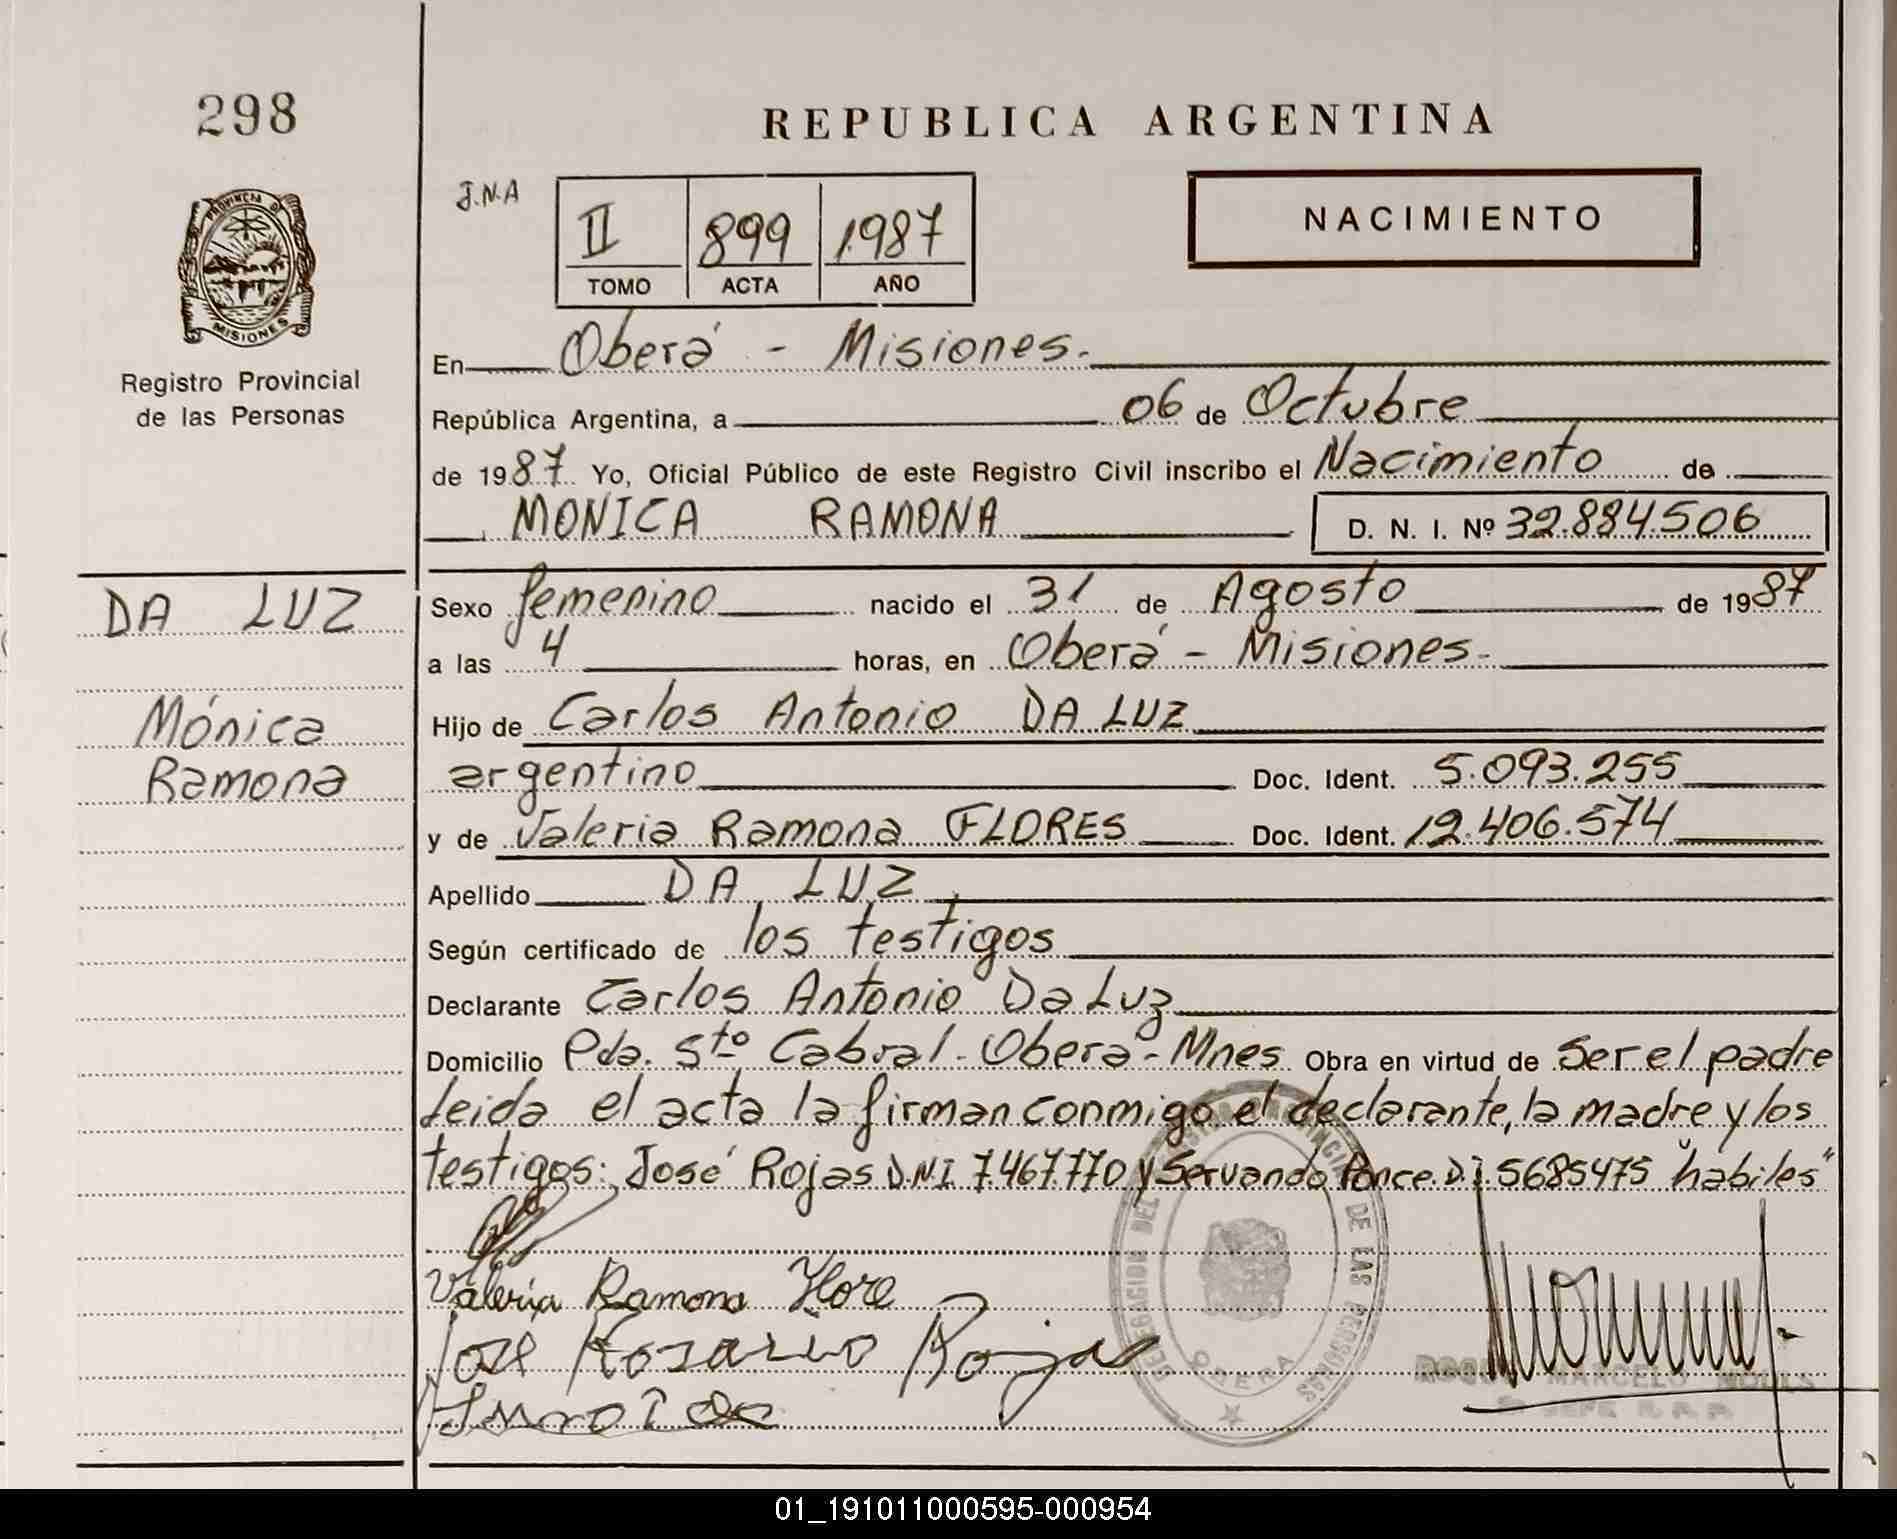 298
REPUBLICA ARGENTINA
J.N.A
II 899 1987
TOMO ACTA AÑO
NACIMIENTO
PROVINCIA DE
MISIONES
Registro Provincial
de las Personas
En Oberá - Misiones.
República Argentina, a 06 de Octubre
de 1987 Yo, Oficial Público de este Registro Civil inscribo el Nacimiento de
MONICA RAMONA D. N. I. Nº 32.884.506
DA LUZ
Mónica
Ramona
Sexo femenino nacido el 31 de Agosto de 1987
a las 4 horas, en Oberá - Misiones-
Hijo de Carlos Antonio DA LUZ
argentino Doc. Ident. 5.093.255
y de Valeria Ramona FLORES Doc. Ident. 12.406.574
Apellido DA LUZ
Según certificado de los testigos
Declarante Carlos Antonio Da Luz
Domicilio Pda. Sto Cabral - Oberá - Mnes Obra en virtud de ser el padre
Leida el acta la firman conmigo el declarante, la madre y los
testigos: José Rojas D.N.I 7467.770 y Servando Ponce D.I. 5685475 "habiles"
Valeria Ramona Flore
José Rosario Rojas
DELEGACION DEL REGISTRO PROVINCIAL DE LAS PERSONAS
OBERA
MARCELO
JEFE R. P. P.
01_191011000595-000954